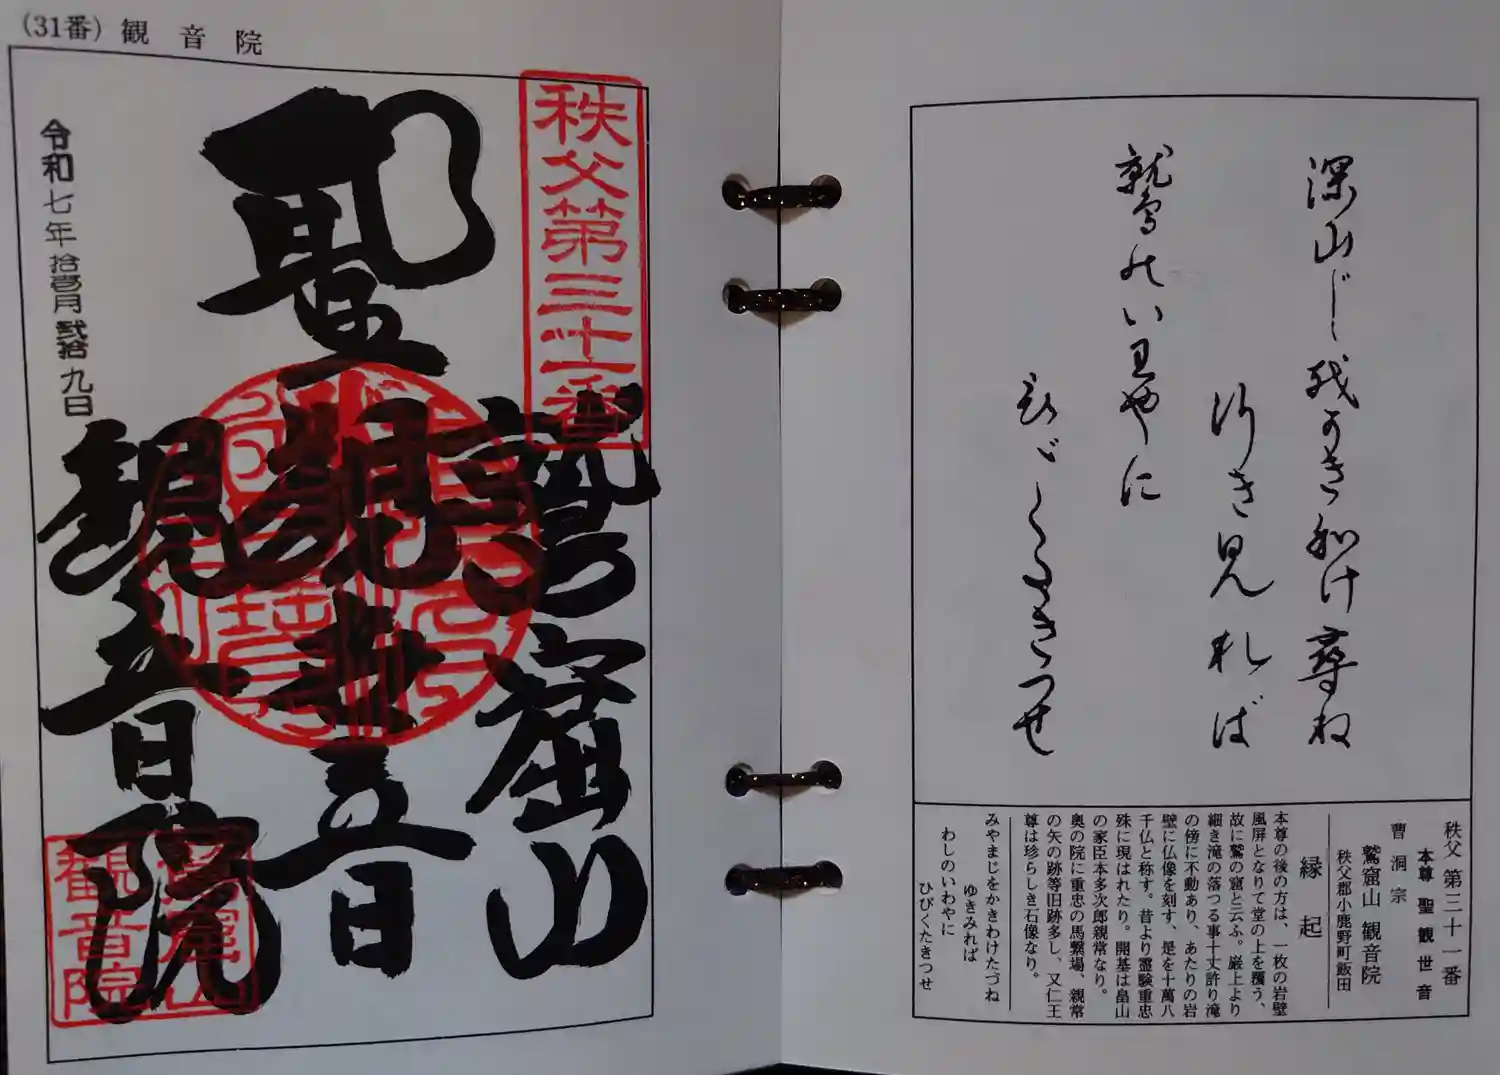 (31番) 観音院
秩父第三十一番
鷲窟山
聖観世音
観音院
鷲窟山
観音院
令和七年拾壱月弐拾九日
深山じを かきわけ尋ね
行き見れば
鷲のいわやに
ひゞくたきつせ
秩父 第三十一番
本尊 聖観世音
曹洞宗
鷲窟山 観音院
秩父郡小鹿野町飯田
縁起
本尊の後の方は、一枚の岩壁
風屏となりて堂の上を覆う、
故に鷲の窟と云ふ。巌上より
細き滝の落つる事十丈許り滝
の傍に不動あり、あたりの岩
壁に仏像を刻す、是を十萬八
千仏と称す。昔より霊験重忠
殊に現はれたり。開基は畠山
の家臣本多次郎親常なり。
奥の院に重忠の馬繋場、親常
の矢の跡等旧跡多し、又仁王
尊は珍らしき石像なり。
みやまじをかきわけたづね
ゆきみれば
わしのいわやに
ひびくたきつせ